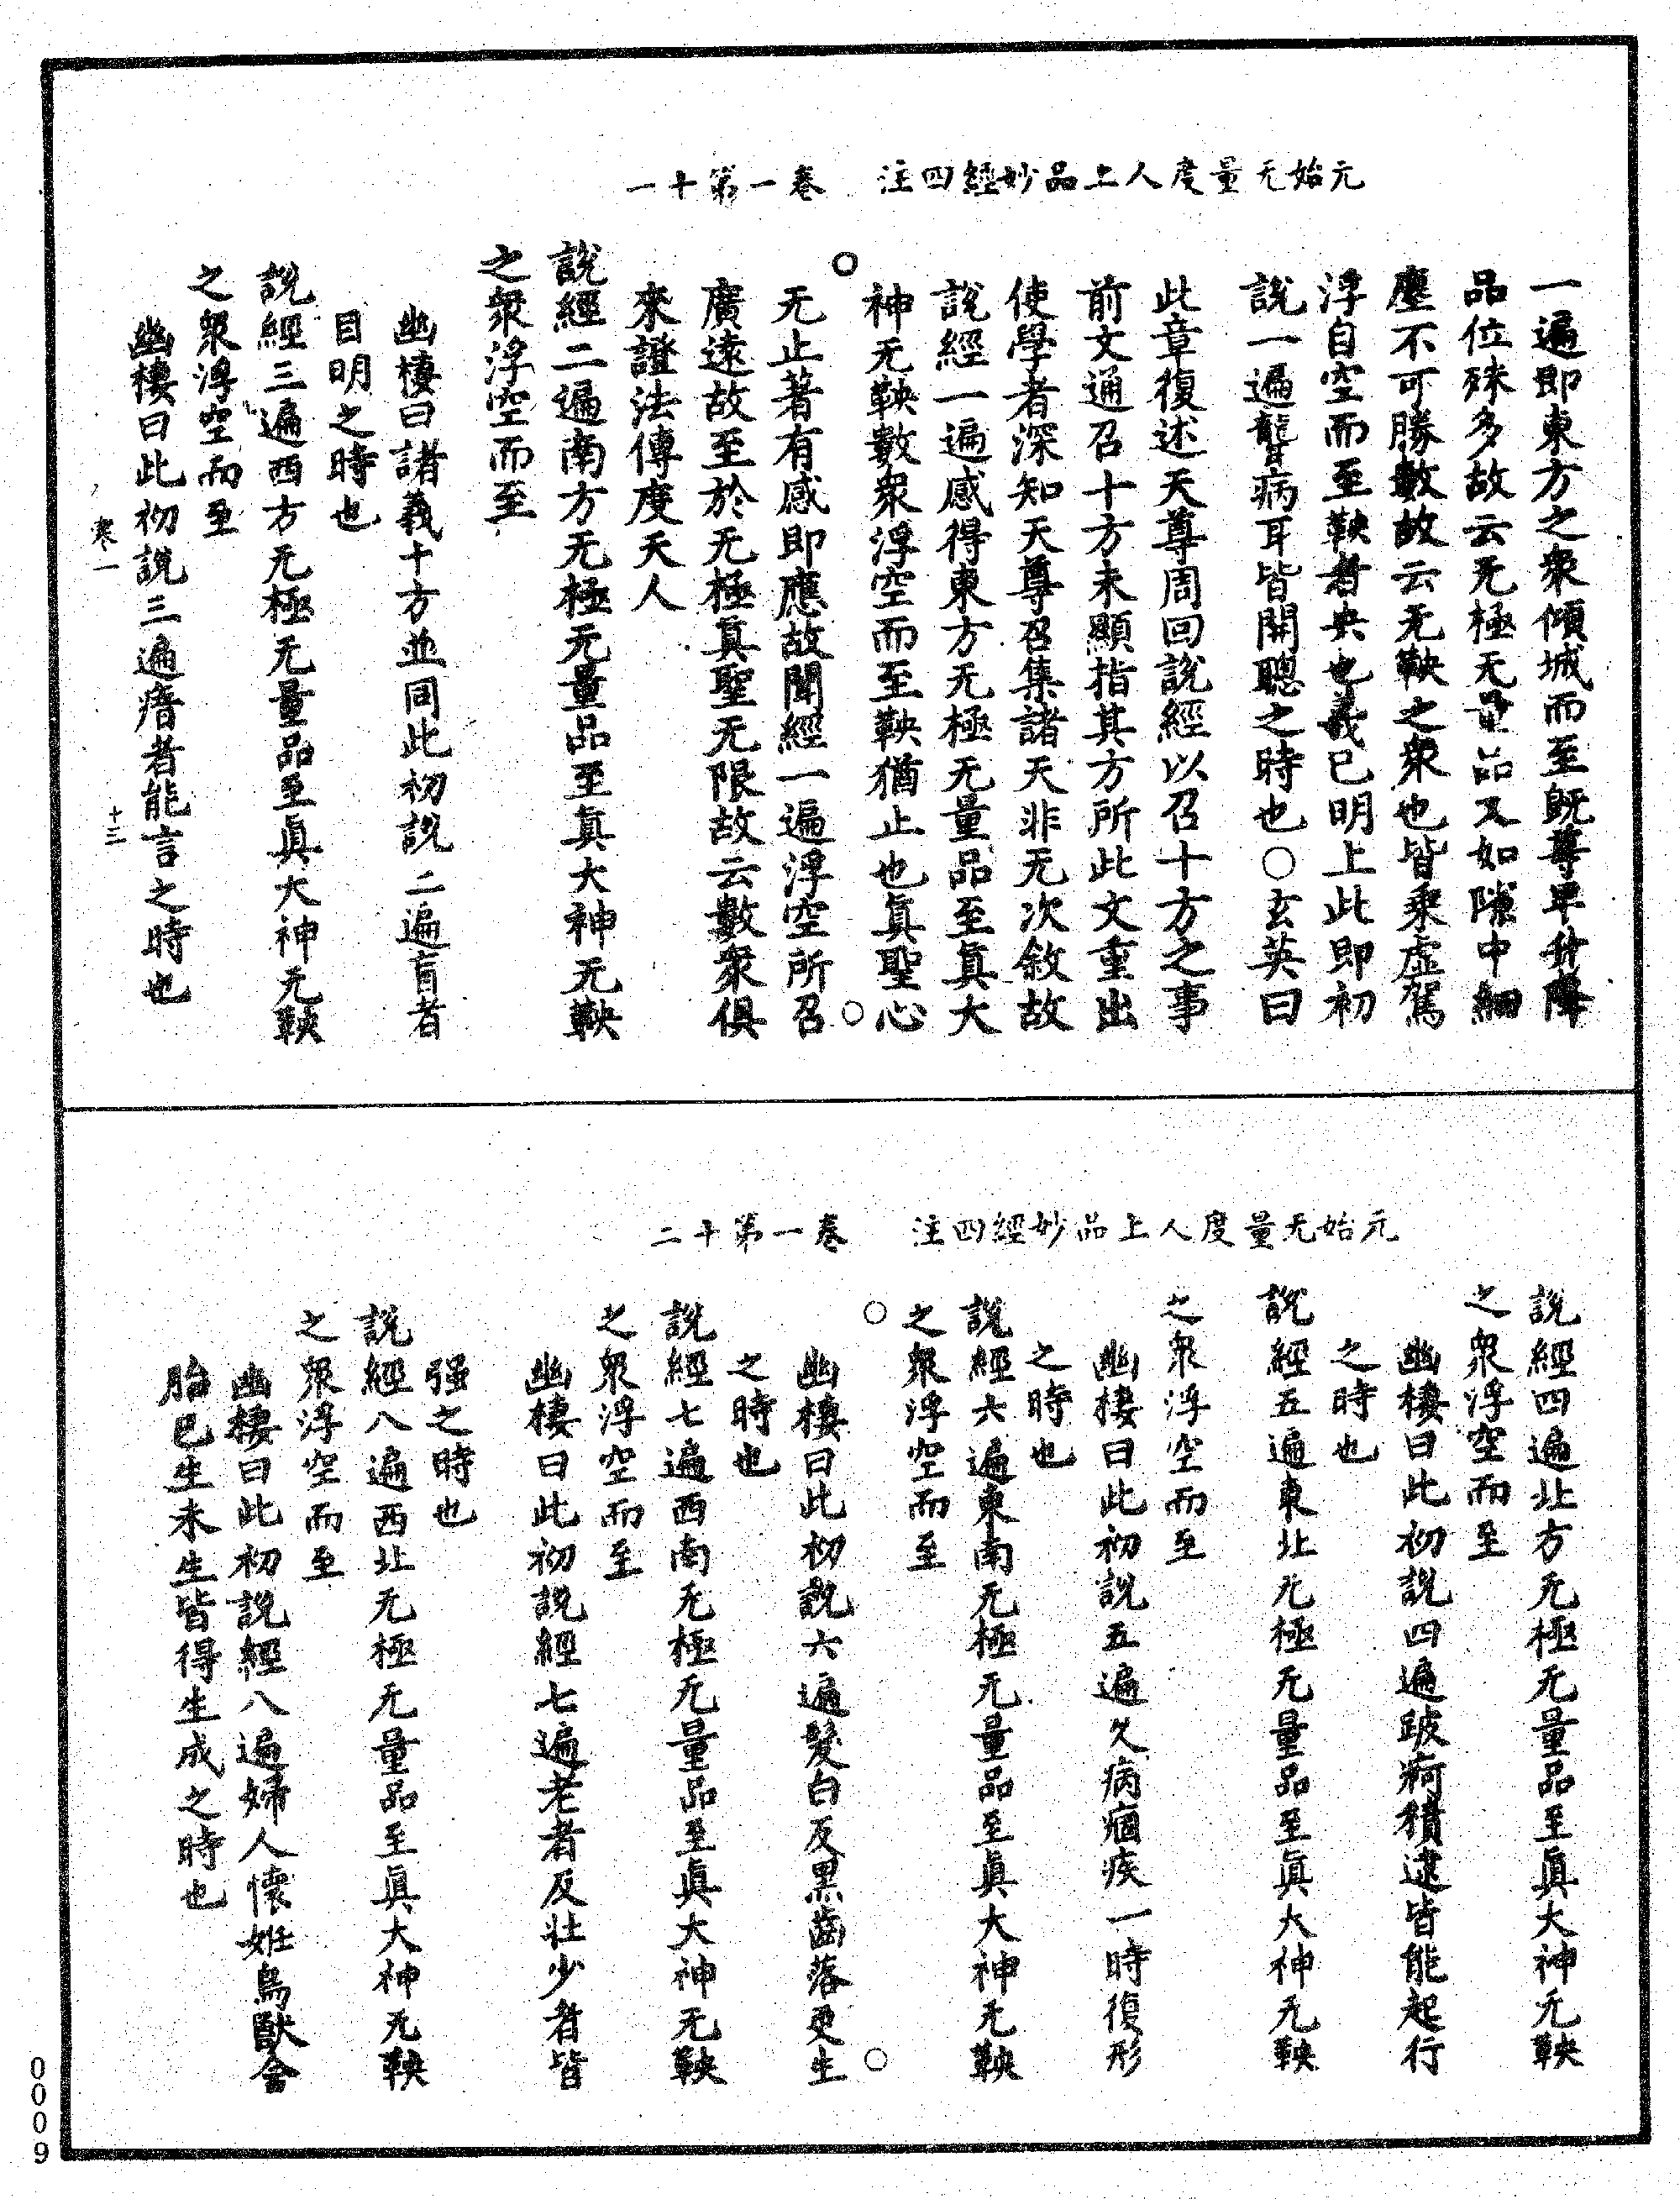 元始无量度人上品妙經四注　卷一第十一
一遍即東方之衆傾城而至旣尊卑升降
品位殊多故云无極无量品又如隙中細
塵不可勝數故云无鞅之衆也皆乘虛駕
浮自空而至鞅者央也義已明上此即初
說一遍聾病耳皆開聰之時也○玄英曰
此章復述天尊周回說經以召十方之事
前文通召十方未顯指其方所此文重出
使學者深知天尊召集諸天非无次敘故
說經一遍感得東方无極无量品至眞大
神无鞅數衆浮空而至鞅猶止也眞聖心
无止著有感即應故聞經一遍浮空所召
廣遠故至於无極眞聖无限故云數衆俱
來證法傳度天人
說經二遍南方无極无量品至眞大神无鞅
之衆浮空而至
幽棲曰諸義十方並同此初說二遍盲者
目明之時也
說經三遍西方无極无量品至眞大神无鞅
之衆浮空而至
幽棲曰此初說三遍瘖者能言之時也
寒一　十三
元始无量度人上品妙經四注　卷一第十二
說經四遍北方无極无量品至眞大神无鞅
之衆浮空而至
幽棲曰此初說四遍跛痾積逮皆能起行
之時也
說經五遍東北无極无量品至眞大神无鞅
之衆浮空而至
幽棲曰此初說五遍久病痼疾一時復形
之時也
說經六遍東南无極无量品至眞大神无鞅
之衆浮空而至
幽棲曰此初說六遍髮白反黑齒落更生
之時也
說經七遍西南无極无量品至眞大神无鞅
之衆浮空而至
幽棲曰此初說經七遍老者反壯少者皆
强之時也
說經八遍西北无極无量品至眞大神无鞅
之衆浮空而至
幽棲曰此初說經八遍婦人懷妊鳥獸含
胎已生未生皆得生成之時也
0009